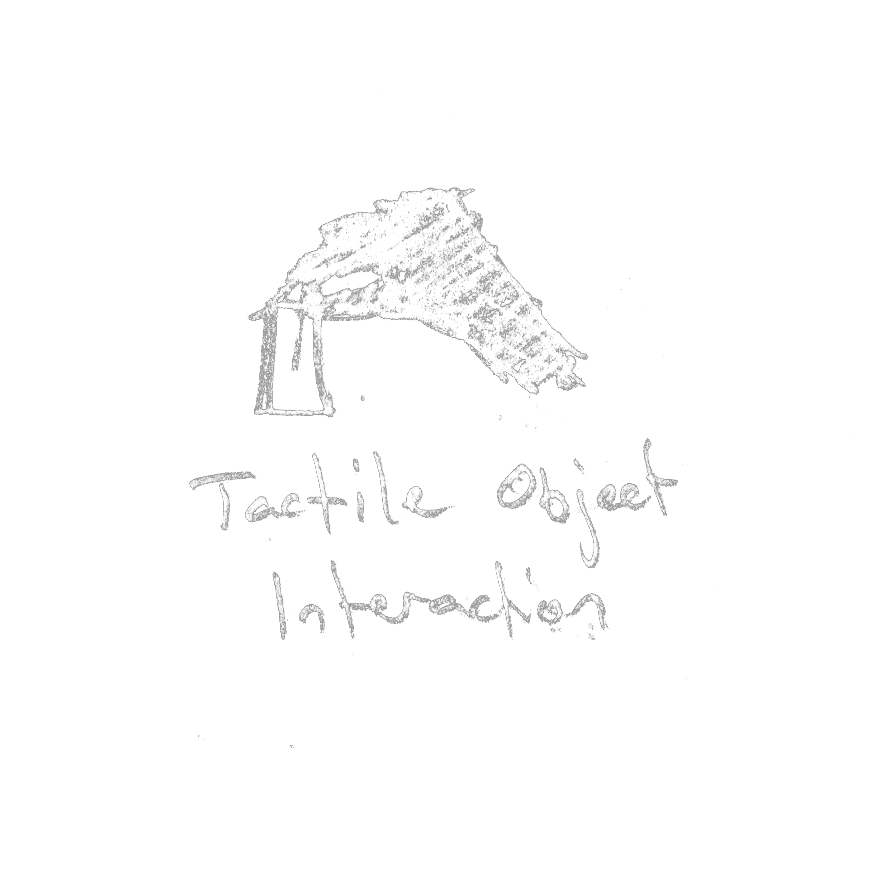 Tactile Object
Interaction